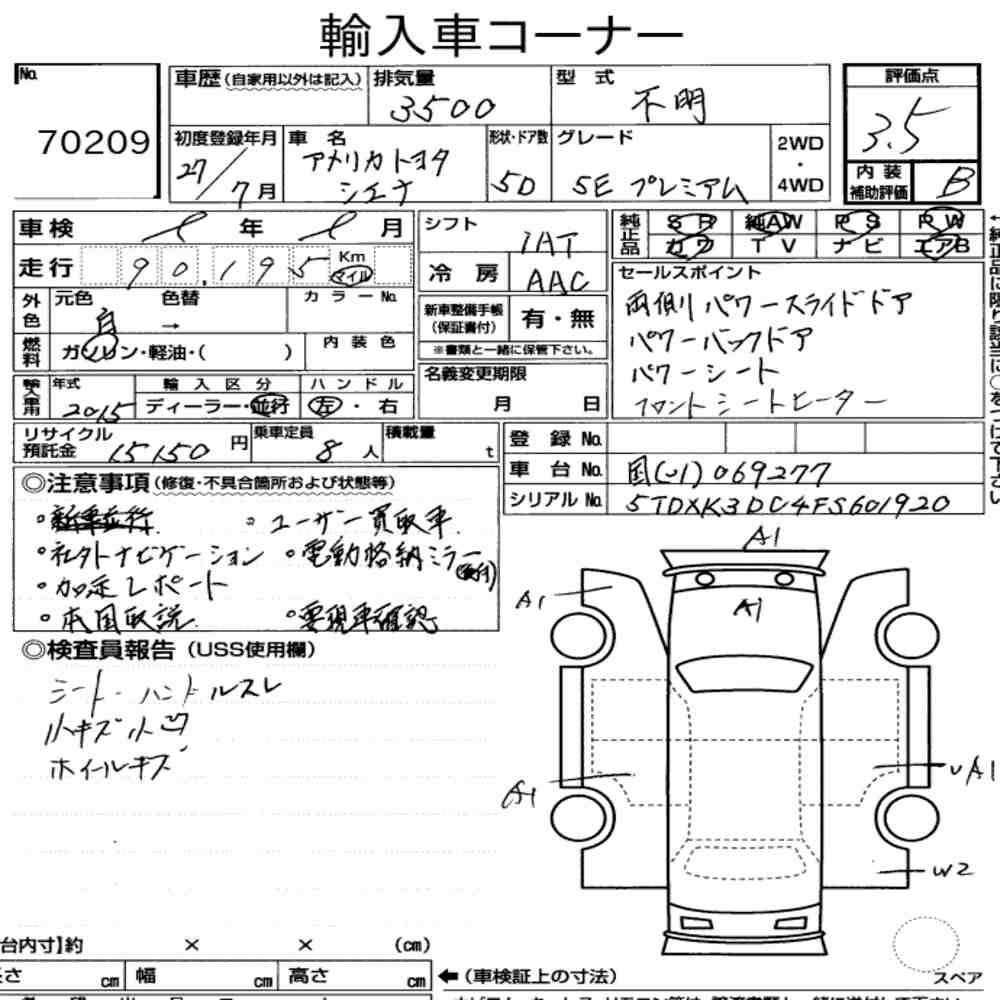 輸入車コーナー
No. 70209
車歴(自家用以外は記入) 排気量 3500 型式 不明 評価点 3.5
初度登録年月 27/7月 車名 アメリカトヨタ シエナ 形状・ドア数 5D グレード SE プレミアム 2WD・4WD 内装補助評価 B
車検 年 月 シフト IAT 純正品 SR 純AW PS PW
走行 90,195 Km マイル 冷房 AAC カワ TV ナビ エアB
外色 元色 白 色替 → カラーNo. 新車整備手帳(保証書付) 有・無
※書類と一緒に保管下さい。
燃料 ガソリン・軽油・( ) 内装色
セールスポイント
両側パワースライドドア
パワーバックドア
パワーシート
フロントシートヒーター
輸入車用 年式 2015 輸入区分 ディーラー・並行 ハンドル 左・右 名義変更期限 月 日
リサイクル預託金 15150円 乗車定員 8人 積載量 t
登録No.
車台No. 国(01)069277
シリアルNo. 5TDXK3DC4FS601920
◎注意事項(修復・不具合箇所および状態等)
・新車並行 ・ユーザー買取車
・社外ナビゲーション ・電動格納ミラー
・加定レポート
・本国取説 ・要現車確認
◎検査員報告(USS使用欄)
シート・ハンドルスレ
小キズ小凹
ホイールキズ
A1
A1 A1
A1 A1
W2
台内寸】約 × × (cm)
長さ cm 幅 cm 高さ cm ←(車検証上の寸法)
スペア